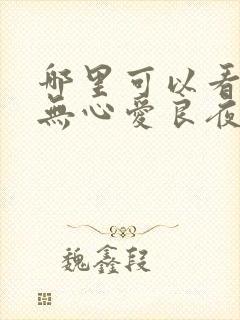 哪里可以看
無心愛良夜
魏鑫段